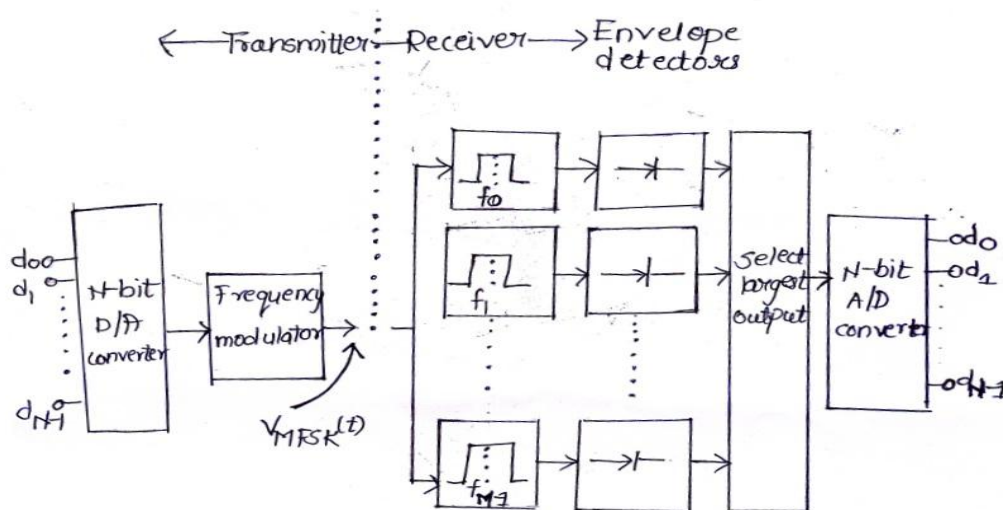 Transmitter
Receiver
Envelope
detectors
d0
d1
dN-1
N-bit
D/A
converter
Frequency
modulator
VMFSK(t)
f0
f1
fM-1
select
largest
output
N-bit
A/D
converter
d0
d1
dN-1